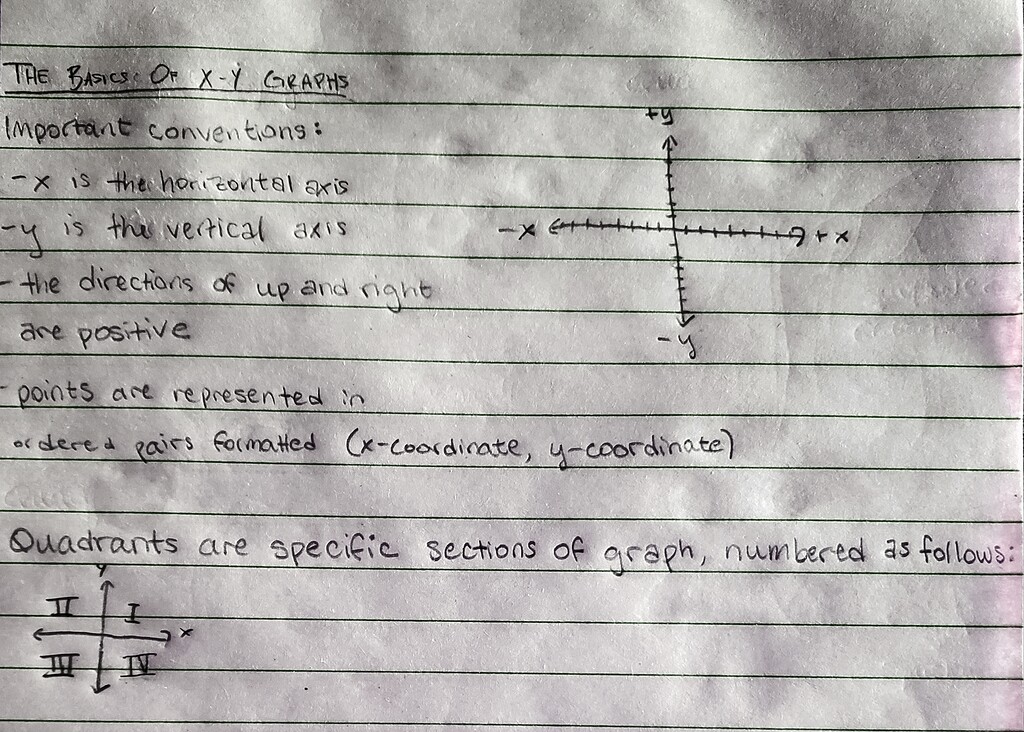 THE BASICS OF X-Y GRAPHS
Important conventions:
- x is the horizontal axis
- y is the vertical axis
- the directions of up and right
are positive
- points are represented in
ordered pairs formatted (x-coordinate, y-coordinate)
+y
-x +x
-y
Quadrants are specific sections of graph, numbered as follows:
y
II I
x
III IV